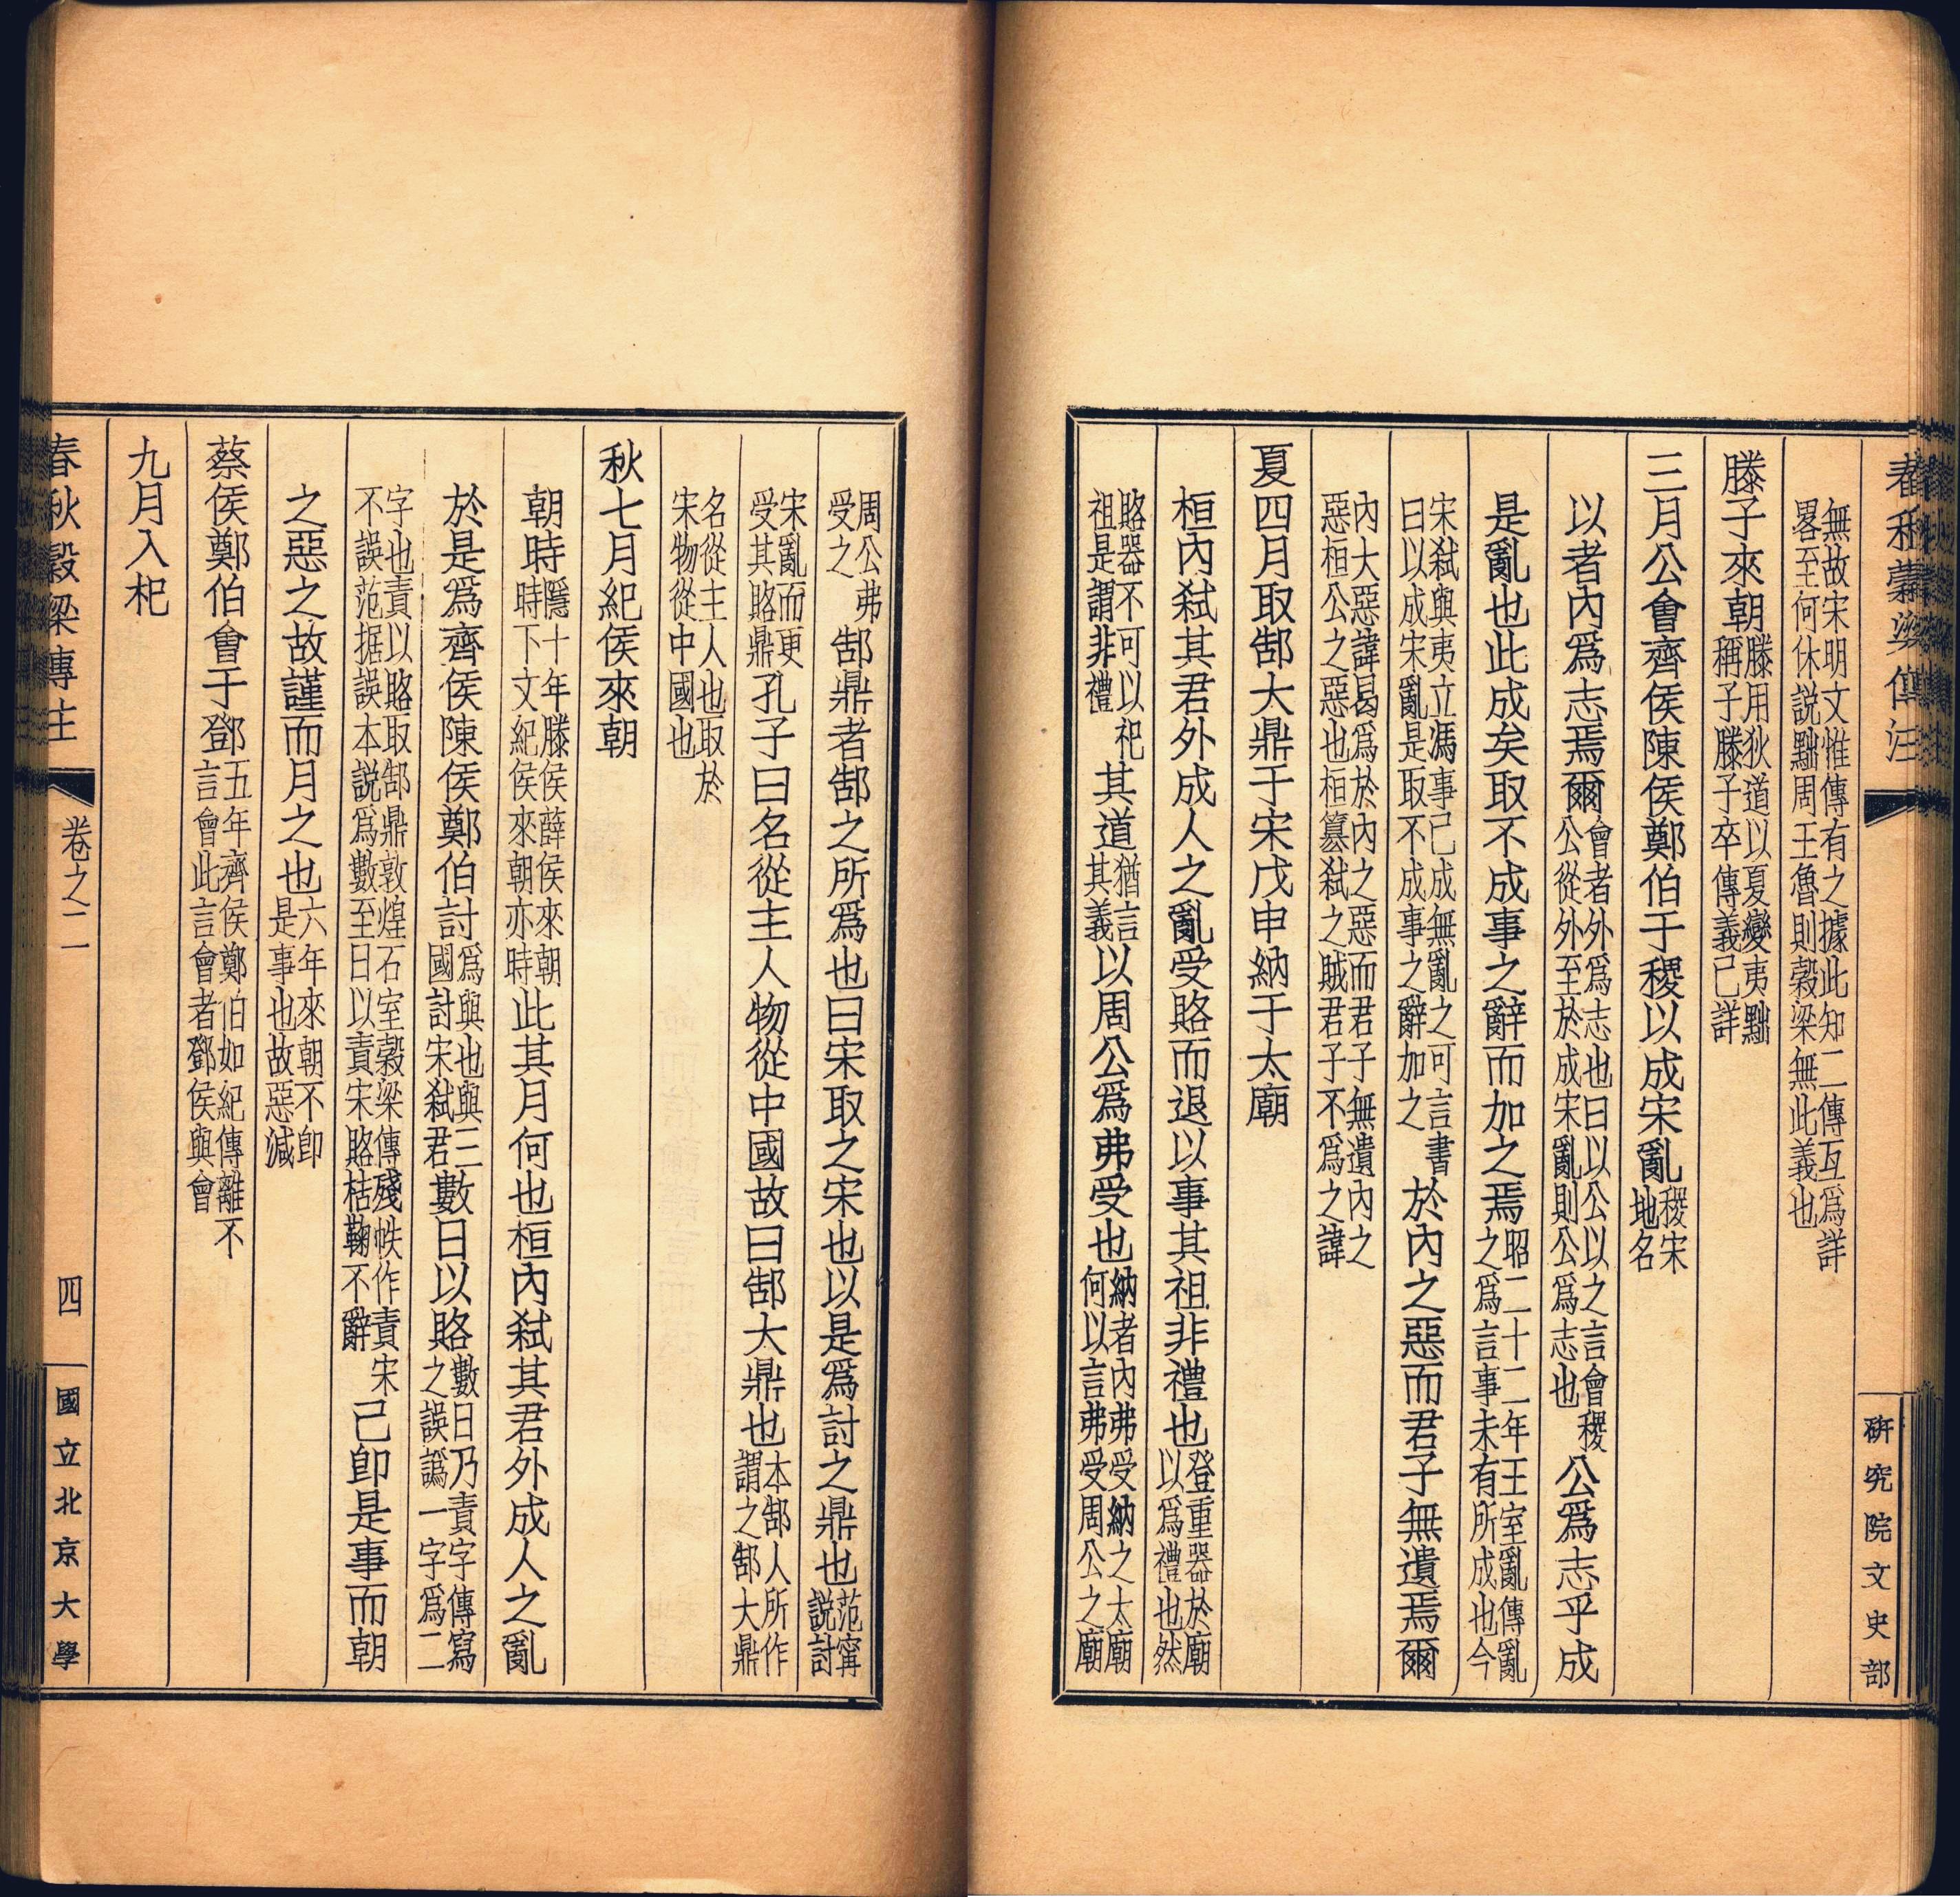 春秋穀梁傳注
研究院文史部
無故宋明文惟傳有之據此知二傳互爲詳
畧至何休說黜周王魯則穀梁無此義也
滕子來朝
滕用狄道以夏變夷黜
稱子滕子卒傳義已詳
三月公會齊侯陳侯鄭伯于稷以成宋亂
稷宋
地名
以者內爲志焉爾
會者外爲志也曰以以公以之言會稷
公從外至於成宋亂則公爲志也
公爲志乎成
是亂也此成矣取不成事之辭而加之焉
昭二十二年王室亂傳亂
之爲言事未有所成也今
宋弑與夷立馮事已成無亂之可言書
曰以成宋亂是取不成事之辭加之
於內之惡而君子無遺焉爾
內大惡諱曷爲於內之惡而君子無遺內之
惡桓公之惡也桓篡弑之賊君子不爲之諱
夏四月取郜大鼎于宋戊申納于太廟
桓內弑其君外成人之亂受賂而退以事其祖非禮也
登重器於廟
以爲禮也然
賂器不可以祀
祖是謂非禮
其道
猶言
其義
以周公爲弗受也
納者內弗受納之太廟
何以言弗受周公之廟
周公弗
受之
郜鼎者郜之所爲也曰宋取之宋也以是爲討之鼎也
范甯
說討
宋亂而更
受其賂鼎
孔子曰名從主人物從中國故曰郜大鼎也
本郜人所作
謂之郜大鼎
名從主人也取於
宋物從中國也
秋七月紀侯來朝
朝時
隱十年滕侯薛侯來朝
時下文紀侯來朝亦時
此其月何也桓內弑其君外成人之亂
於是爲齊侯陳侯鄭伯討
爲與也與三
國討宋弑君
數日以賂
數日乃責字傳寫
之誤譌一字爲二
字也責以賂取郜鼎敦煌石室穀梁傳殘帙作責宋
不誤范据誤本說爲數至日以責宋賂枯鞠不辭
已卽是事而朝
之惡之故謹而月之也
六年來朝不卽
是事也故惡減
蔡侯鄭伯會于鄧
五年齊侯鄭伯如紀傳離不
言會此言會者鄧侯與會
九月入杞
春秋穀梁傳注
卷之二
四
國立北京大學